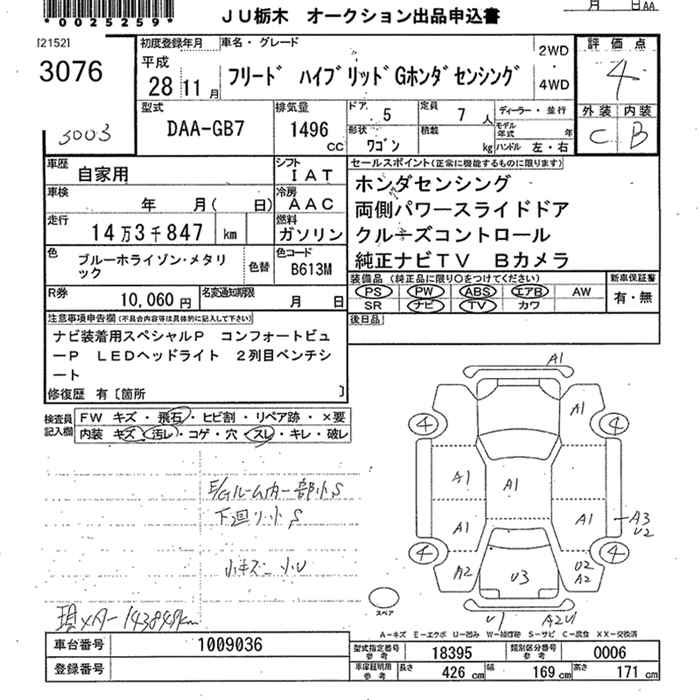 *0025259*
JU栃木 オークション出品申込書
月 日AA
[2152]
3076
3003
初度登録年月
平成
28 11月
車名・グレード
フリード ハイブリッドGホンダセンシング
2WD
・
4WD
評価点
4
外装 内装
C B
型式
DAA-GB7
排気量
1496
CC
ドア
5
形状
ワゴン
定員
7人
積載
kg
ディーラー・並行
モデル年式 年
ハンドル 左・右
車歴
自家用
シフト
IAT
車検
年 月( 日)
冷房
AAC
走行
14万3千847 km
燃料
ガソリン
色
ブルーホライゾン・メタリ
ック
色替
色コード
B613M
R券
10,060円
名変通知期限
月 日
セールスポイント(正常に機能するものに限ります)
ホンダセンシング
両側パワースライドドア
クルーズコントロール
純正ナビTV Bカメラ
装備品(純正品に限り○をつけてください)
PS PW ABS エアB AW
SR ナビ TV カワ
新車保証書
有・無
後日品
注意事項申告欄(不具合内容等は具体的に記入して下さい)
ナビ装着用スペシャルP コンフォートビュ
ーP LEDヘッドライト 2列目ベンチシ
ート
修復歴 有〔箇所 〕
検査員
記入欄
FW キズ・飛石・ヒビ割・リペア跡・×要
内装 キズ・汚レ・コゲ・穴・スレ・キレ・破レ
E/Gルーム内一部小S
下回り小S
小キズ 小U
現メーター143849km
A1
A1
4 4
A1 A1
A1 A1
A3
U2
4 4
A2 U3 U2
A2
U1 A2U1
スペア
A-キズ E-エクボ U-凹み W-補修跡 S-サビ C-腐食 XX-交換済
車台番号 1009036
登録番号
型式指定番号
参考
18395
類別区分番号
参考
0006
車庫証明用
参考
長さ 426cm 幅 169cm 高さ 171cm